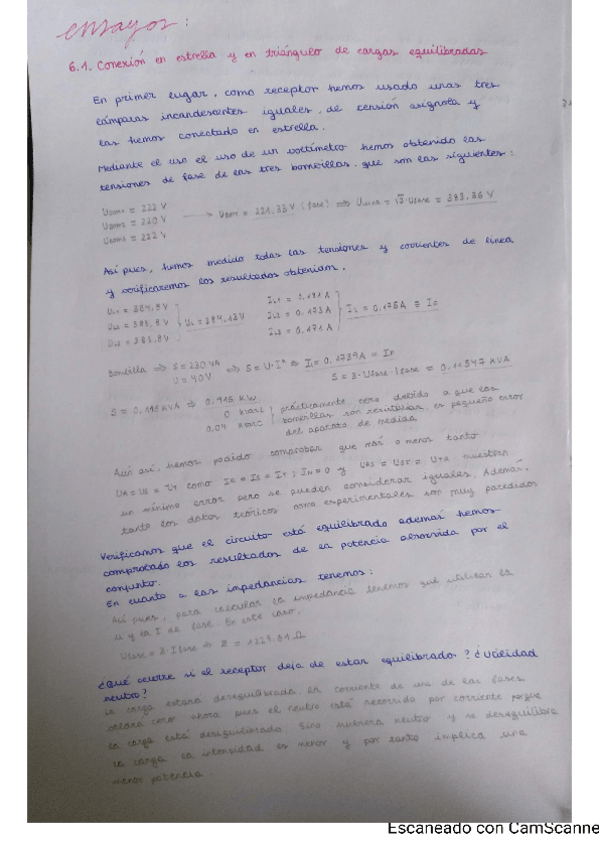 ensayos:
6.1. Conexión en estrella y en triángulo de cargas equilibradas
En primer lugar, como receptor hemos usado unas tres
lámparas incandescentes iguales, de tensión asignada y
las hemos conectado en estrella.
Mediante el uso el uso de un voltímetro hemos obtenido las
tensiones de fase de las tres bombillas, que son las siguientes:
= 222 V
= 220 V
= 222 V
= 221,33 V (fase) ⇒ = √3 · Ufase = 383,36 V
Así pues, hemos medido todas las tensiones y corrientes de línea
y verificaremos los resultados obtenidos.
= 384,9 V
= 0,173 A
= 0,171 A
UL = 384,13 V
IL = 0,175 A
Bombilla ⇒ S = 230 VA
U = 40 V
⇒ S = U · I* ⇒ = 0,1739 A =
S = 3 · Ufase · Ifase = 0,11547 KVA
S = 0,115 KVA ⇒ 0,115 KW
0
0,04
prácticamente cero debido a que las
bombillas son resistivas, es pequeño error
del aparato de medida
Aún así, hemos podido comprobar que más o menos tanto
como y muestran
un mínimo error pero se pueden considerar iguales. Además,
tanto los datos teóricos como experimentales son muy parecidos
Verificamos que el circuito está equilibrado además hemos
comprobado los resultados de la potencia absorvida por el
conjunto.
En cuanto a las impedancias tenemos:
Así pues, para calcular la impedancia tenemos que utilizar la
U y la I de fase. En este caso.
Ufase = Z · Ifase ⇒ Z = Ω
¿Qué ocurre si el receptor deja de estar equilibrado? ¿Utilidad
neutro?
la carga estará desequilibrada, la corriente de una de las fases
cero ahora pues el neutro está recorrido por corriente porque
la carga está desequilibrada. Sino hubiera neutro y se desequilibra
la carga la intensidad es menor y por tanto implica una
menor potencia.
Escaneado con CamScanne